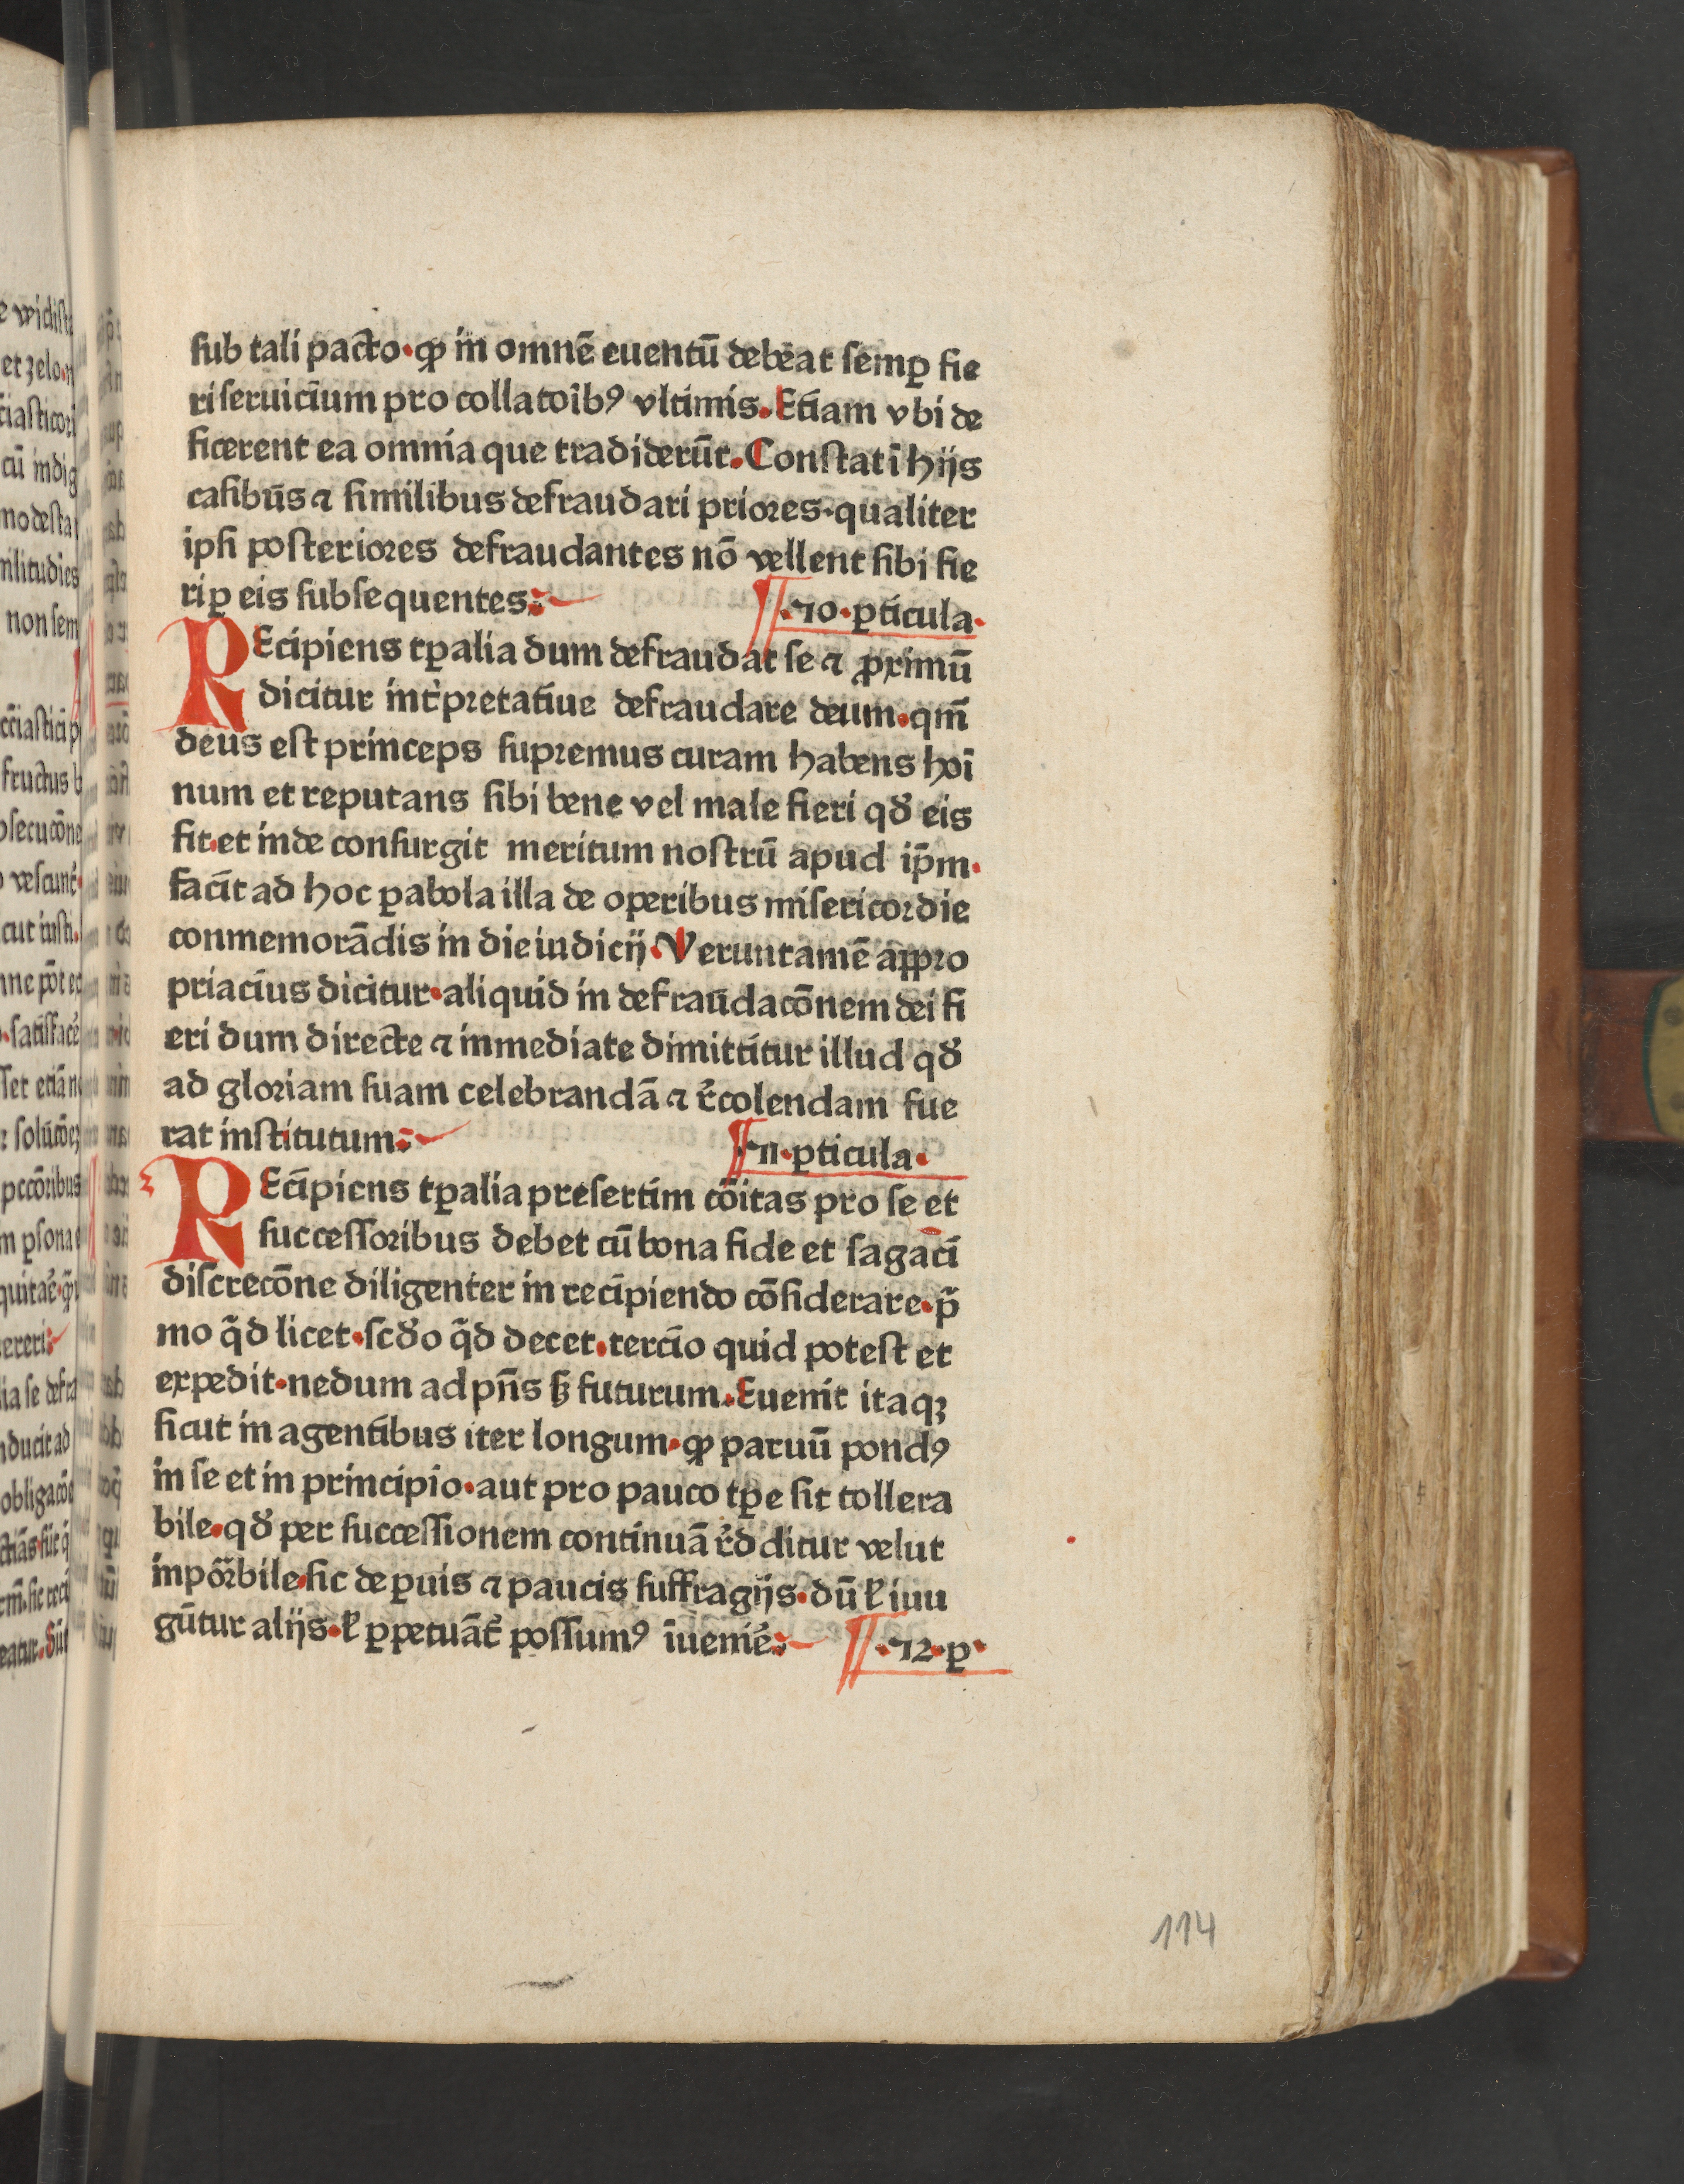 sub tali pacto·ꝙ in omnē euentū debeat semꝑ fie
ri seruicium pro collatoībꝰ vltimis. Etiam vbi de
ficerent ea omnia que tradiderūt. Constat ī hijs
casibus ⁊ similibus defraudari priores·qualiter
ipsi posteriores defraudantes nō vellent sibi fie
ri ꝑ eis subsequentes:
¶·10·ꝑticula·
REcipiens tꝑalia dum defraudat se ⁊ ꝓximū
dicitur int̉pretatiue defraudare deum·qm̄
deus est princeps supremus curam habens hoī
num et reputans sibi bene vel male fieri qđ eis
fit·et inde consurgit meritum nostrū apud ip̄m·
facit ad hoc ꝑabola illa de operibus misericordie
conmemorādis in die iudicij·Veruntamē appro
priacius dicitur·aliquid in defraudacōnem dei fi
eri dum directe ⁊ inmediate dimittitur illud qđ
ad gloriam suam celebrandā ⁊ r̉colendam fue
rat institutum:
¶·11·ꝑticula·
REcipiens tꝑalia presertim cōitas pro se et
successoribus debet cū bona fide et sagaci
discrecōne diligenter in recipiendo cōsiderare·p̄
mo q̄d licet·scđo q̄d decet·tercio quid potest et
expedit·nedum ad pn̄s sꝫ futurum. Euenit itaqꝫ
sicut in agentibus iter longum·ꝙ paruū pondꝰ
in se et in principio·aut pro pauco tꝑe sit tollera
bile·qđ per successionem continuā r̉dditur velut
inpōrbile·sic de ꝑuis ⁊ paucis suffragijs·dū ł iuu
gūtur alijs·ł ꝑpetuāt̉ possumꝰ īuenir̉:
¶·12·ꝑ·
114